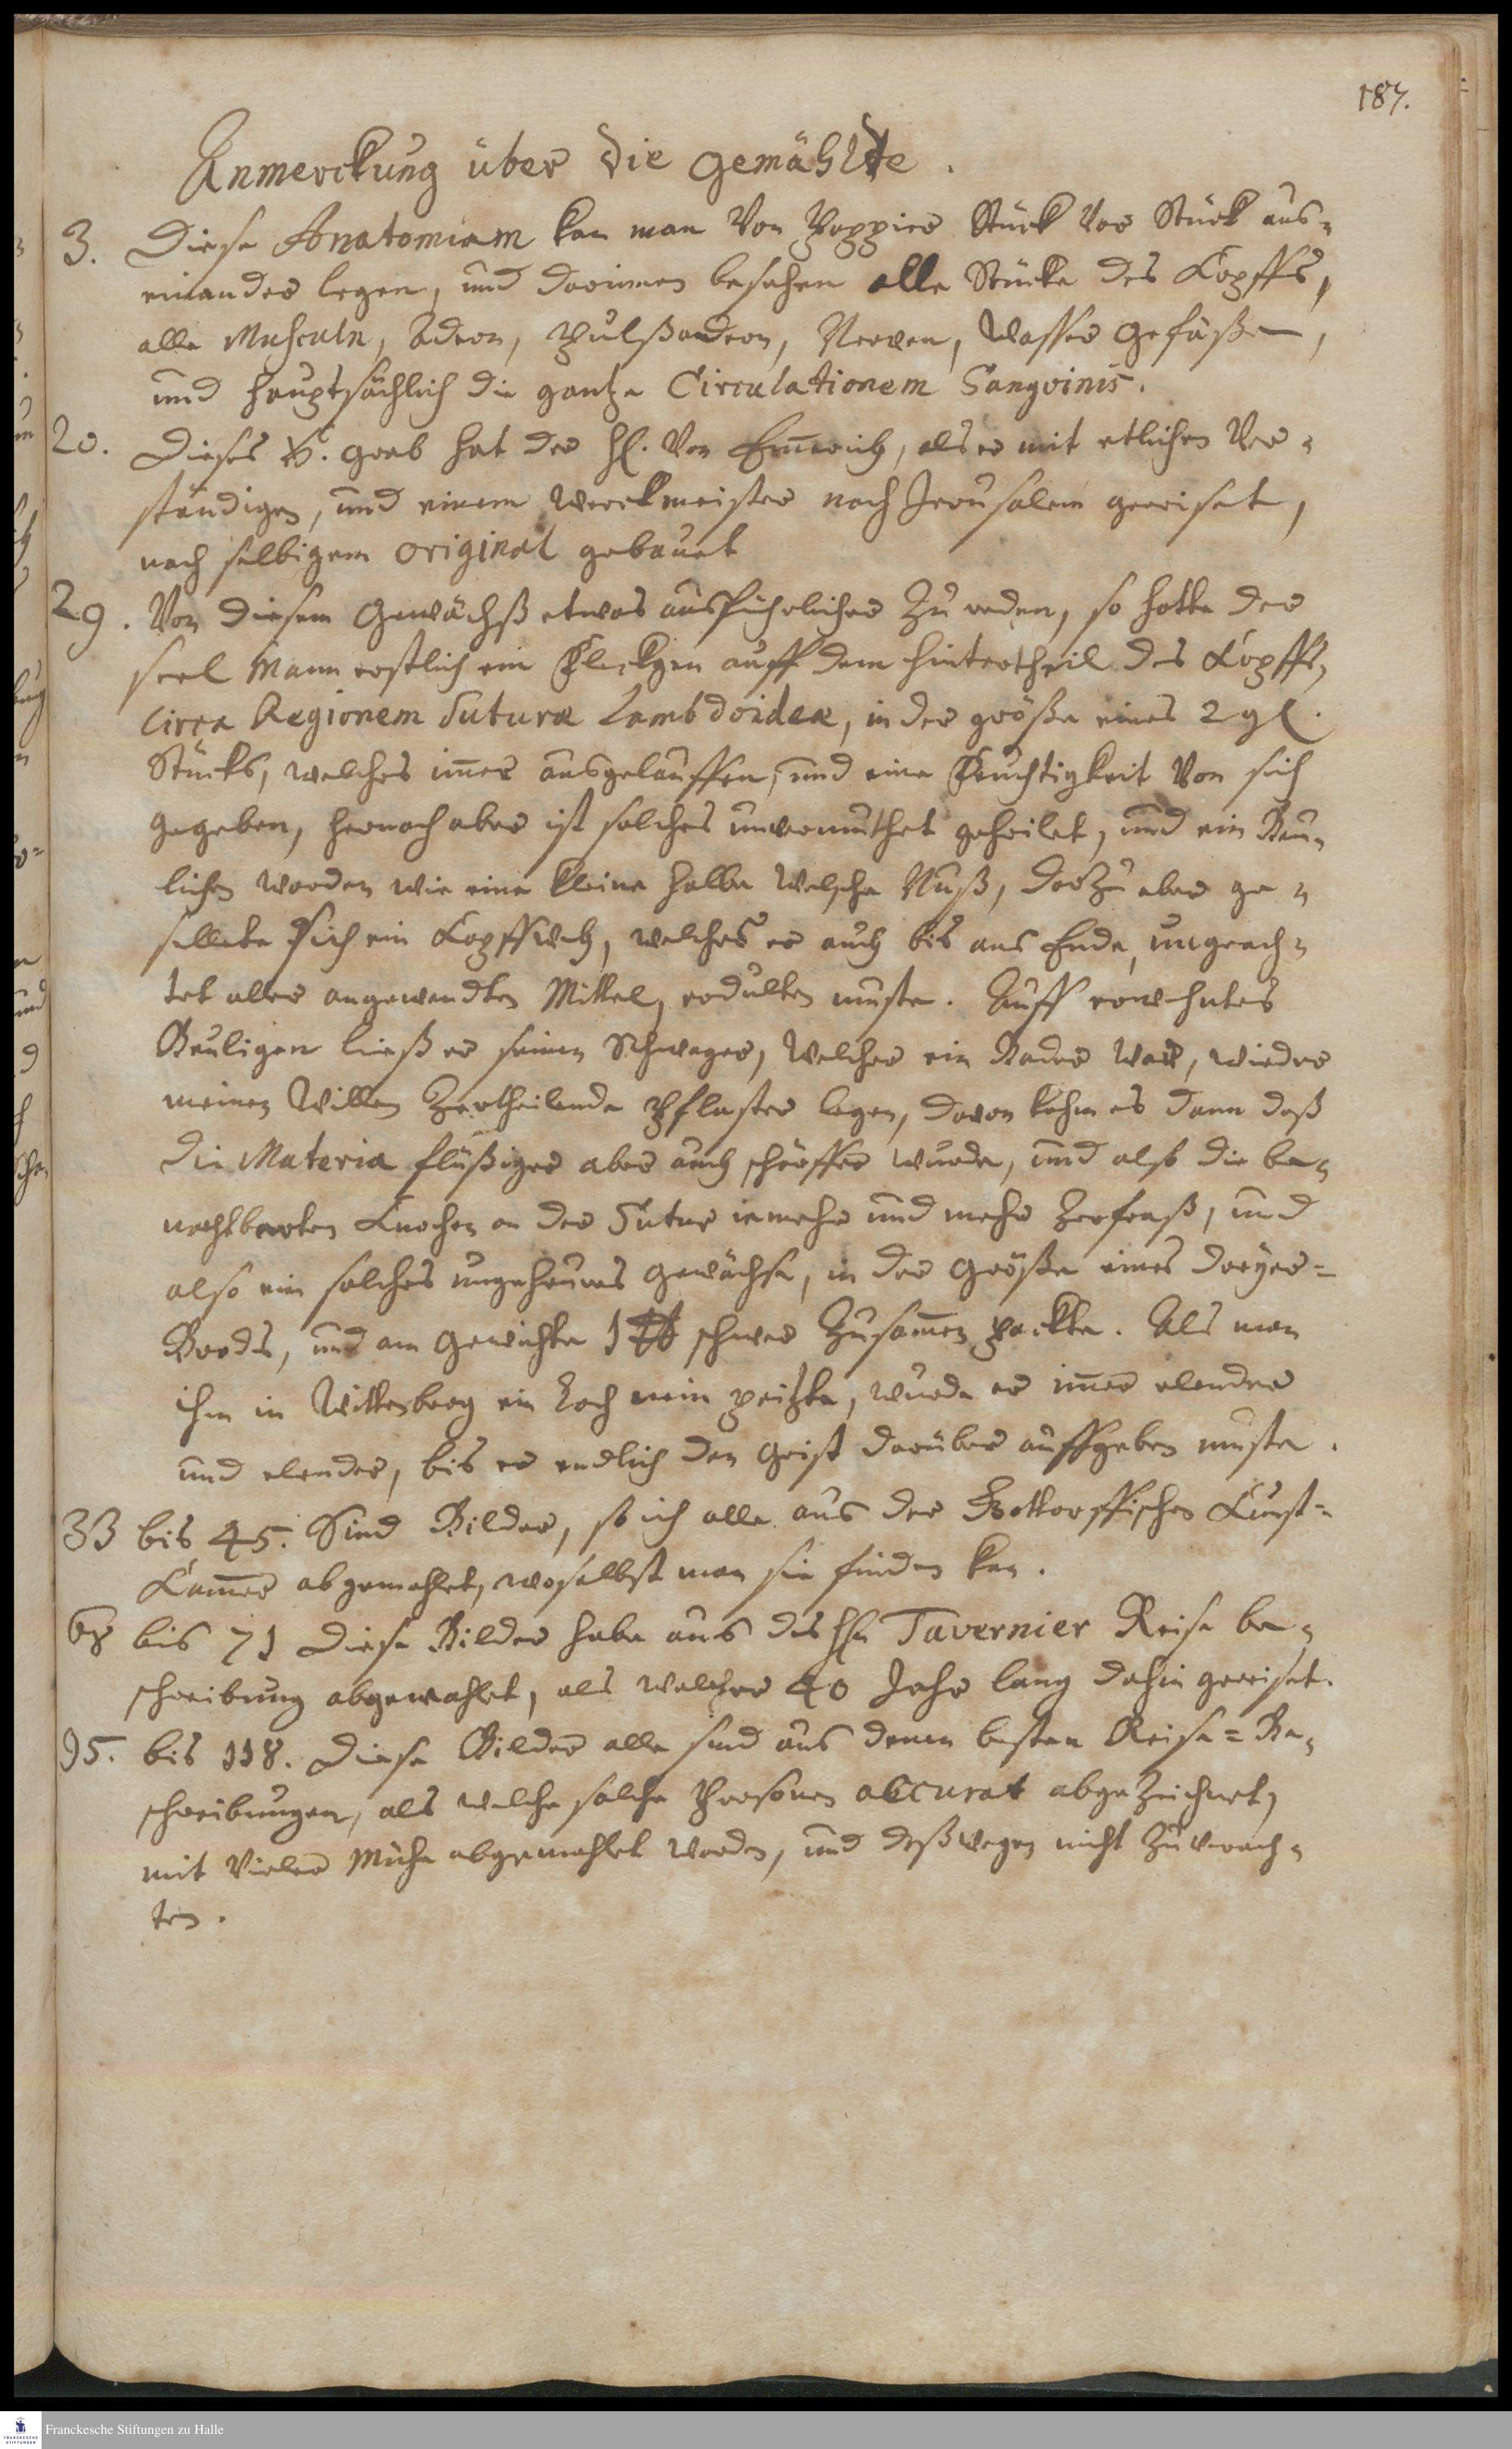 187.
Anmerckung über die gemählde.
3. Diese Anatomiam kan man Von Pappier Stück vor Stück aus=
einander legen, und darinnen besehen alle Stücke des Kopffs,
alle Musculn, Adern, Pulßadern, Nerven, Wasser Gefäße,
und hauptsächlich die gantze Circulationem Sangvinis.
20. Dieses H. Grab hat der H. Von Em̄erich, als er mit etlichen Ver=
ständigen, und einem Werckmeister nach Jerusalem gereiset,
nach selbigem original gebauet
29. Von diesem Gewächß etwas ausführlicher zu reden, so hatte der
seel Mann erstlich ein Fleckgen auff dem hintertheil des Kopffs,
circa Regionem Suturæ Lambdoideæ, in der größe eines 2 gl.
Stücks, welches im̄er ausgelauffen, und eine Feuchtigkeit Von sich
gegeben, hernach aber ist solches unvermuthet geheilet, und ein Beu=
lichen worden wie eine kleine halbe Welsche Nuß, darzu aber ge=
sellete sich ein Kopffweh, welches er auch bis ans Ende, ungeach=
tet aller angewandten Mittel, erdulten muste. Auff erwehntes
Beuligen ließ er seinen Schwager, welcher ein Bader war, wieder
meinen Willen zertheilende Pflaster legen, davon kahm es dann daß
die Materia flüßiger aber auch schärffer wurde, und also die be=
nachtbarten Knochen an der Sutur iemehr und mehr zerfraß, und
also ein solches ungeheures gewächse, in der Größe eines Dreyer=
Brods, und am Gewichte 1 ℔ schwer zusam̄en packte. Als man
ihm in Wittenberg ein Loch nein peitzte, wurde er im̄er elender
und elender, bis er endlich den Geist darüber auffgeben muste.
33 bis 45. Sind Bilder, so ich alle aus der Gottorffischen Kunst=
Kam̄er abgemahlet, woselbst man sie finden kan.
68 bis 71 Diese Bilder habe aus des Hn Tavernier Reise be=
schreibung abgemahlet, als welcher 40 Jahr lang dahin gereiset.
95. bis 118. Diese Bilder alle sind aus denen besten Reise=Be=
schreibungen, als welche solche Persohnen accurat abgezeichnet,
mit Vieler Mühe abgemahlet worden, und deßwegen nicht zu verach=
ten.
Franckesche Stiftungen zu Halle